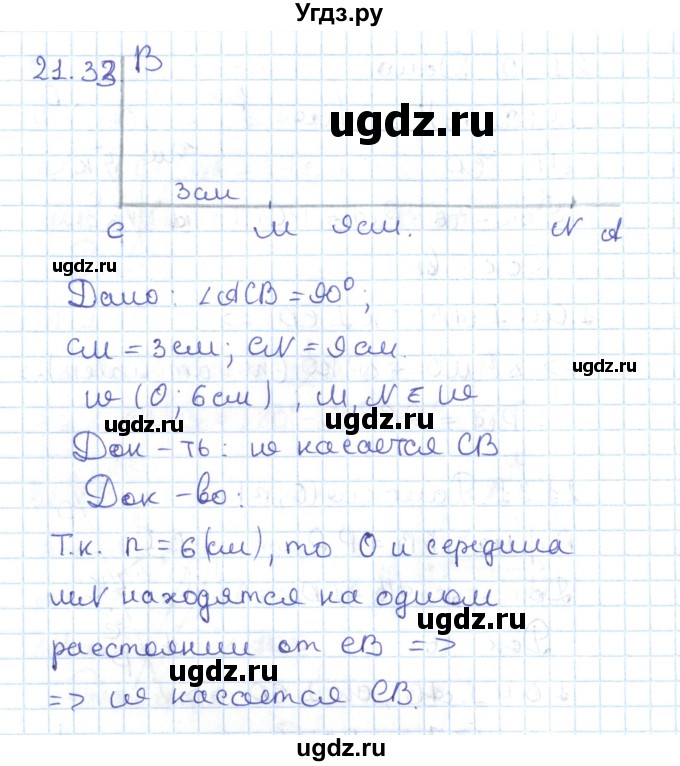 Угдз.ру
21.33
B
ugdz.ru
3 см
C M 9 см. N A
ugdz.ru
Дано: ∠ACB = 90°;
CM = 3 см; CN = 9 см.
ugdz.ru
ω (O; 6 см), M, N ∈ ω
ugdz.ru
ugdz.ru
Док-ть: ω касается CB
Док-во:
Т.к. r = 6 (см), то O и середина
MN находятся на одном
расстоянии от CB =>
ugdz.ru
=> ω касается CB.
ugdz.ru
ugdz.ru